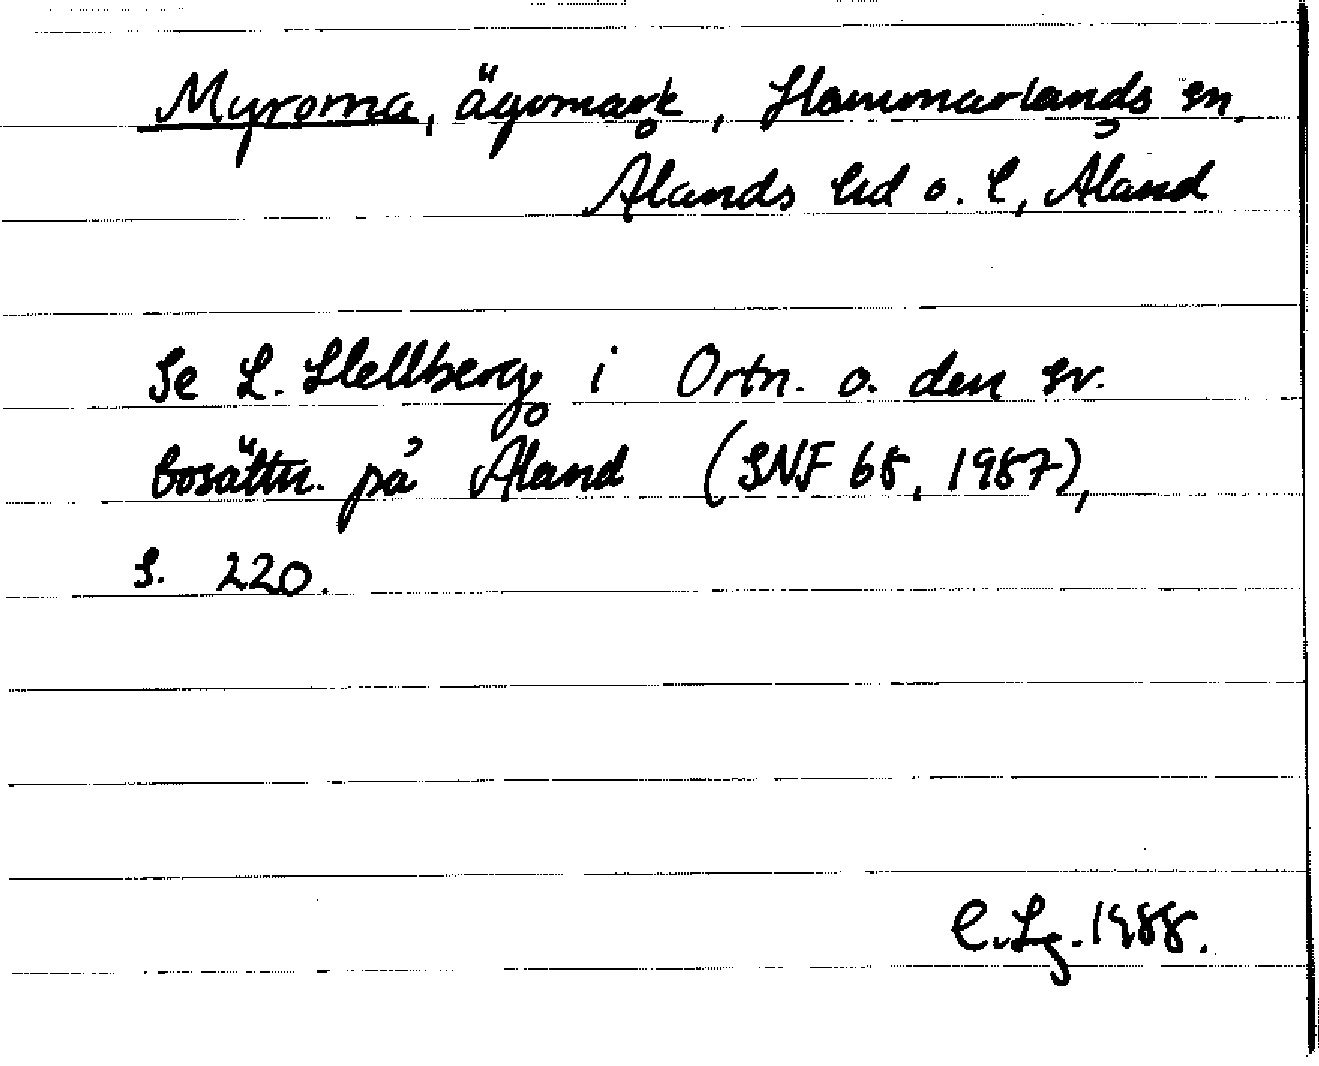 Myrorna, ägomark, Hammarlands sn.
Ålands hd o. l, Åland
Se L. Hellberg i Ortn. o. den sv.
bosättn. på Åland (SNF 68, 1987),
s. 220.
C. Lg. 1988.